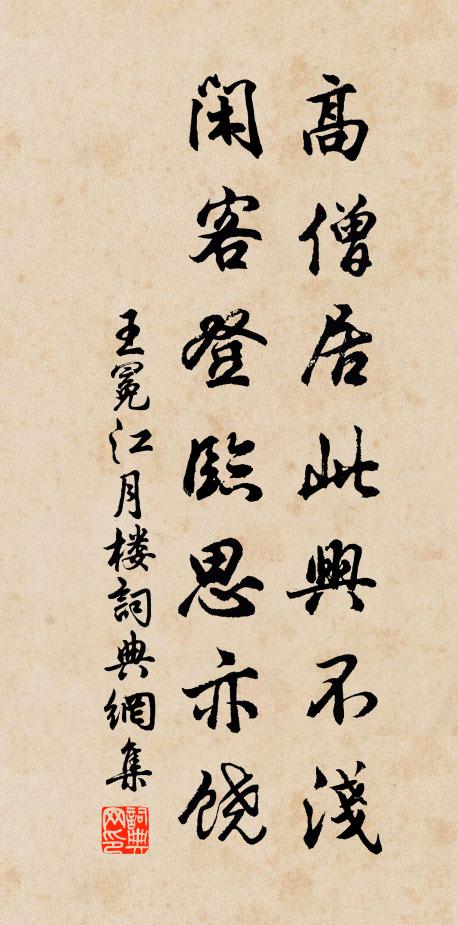 高僧居此興不淺
閑客登臨思亦饒
王冕江月楼詞典網集
詞典网印